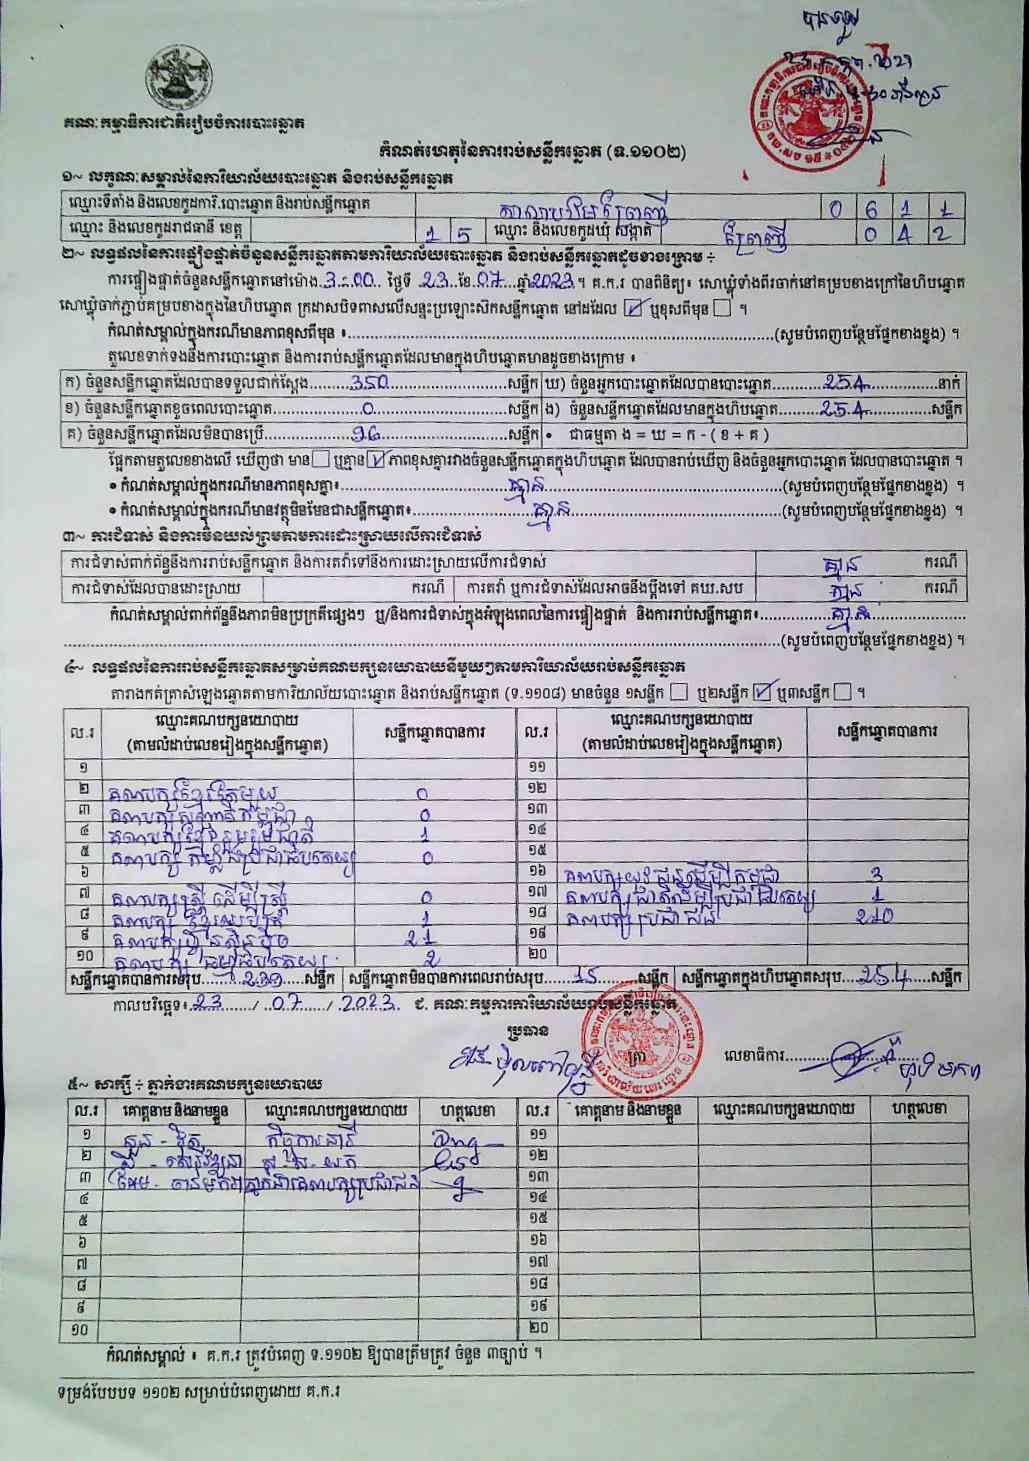 បានទទួល
គណៈកម្មាធិការជាតិរៀបចំការបោះឆ្នោត
កំណត់ហេតុនៃការរាប់សន្លឹកឆ្នោត (ទ.១១០២)
១~ លក្ខណៈសម្គាល់នៃការិយាល័យបោះឆ្នោត និងរាប់សន្លឹកឆ្នោត
ឈ្មោះទីតាំង និងលេខកូដការិ.បោះឆ្នោត និងរាប់សន្លឹកឆ្នោត 0 6 1 1
ឈ្មោះ និងលេខកូដរាជធានី ខេត្ត 1 5 ឈ្មោះ និងលេខកូដឃុំ សង្កាត់ 0 4 2
២~ លទ្ធផលនៃការផ្ទៀងផ្ទាត់ចំនួនសន្លឹកឆ្នោតតាមការិយាល័យបោះឆ្នោត និងរាប់សន្លឹកឆ្នោតដូចខាងក្រោម ÷
ការផ្ទៀងផ្ទាត់ចំនួនសន្លឹកឆ្នោតនៅម៉ោង 3:00 ថ្ងៃទី 23 ខែ 07 ឆ្នាំ 2023 ។ គ.ក.រ បានពិនិត្យ៖ សោឃ្លុំទាំងពីរចាក់នៅគម្របខាងក្រៅនៃហិបឆ្នោត
សោឃ្លុំចាក់ភ្ជាប់គម្របខាងក្នុងនៃហិបឆ្នោត ក្រដាសបិទពាសលើសន្ទះប្រឡោះសិកសន្លឹកឆ្នោត នៅដដែល ☑ ឬខុសពីមុន ☐ ។
កំណត់សម្គាល់ក្នុងករណីមានភាពខុសពីមុន ៖ (សូមបំពេញបន្ថែមផ្នែកខាងខ្នង) ។
តួលេខទាក់ទងនឹងការបោះឆ្នោត និងការរាប់សន្លឹកឆ្នោតដែលមានក្នុងហិបឆ្នោតមានដូចខាងក្រោម ៖
ក) ចំនួនសន្លឹកឆ្នោតដែលបានទទួលជាក់ស្តែង 350 សន្លឹក ឃ) ចំនួនអ្នកបោះឆ្នោតដែលបានបោះឆ្នោត 254 នាក់
ខ) ចំនួនសន្លឹកឆ្នោតខូចពេលបោះឆ្នោត 0 សន្លឹក ង) ចំនួនសន្លឹកឆ្នោតដែលមានក្នុងហិបឆ្នោត 254 សន្លឹក
គ) ចំនួនសន្លឹកឆ្នោតដែលមិនបានប្រើ 96 សន្លឹក • ជាធម្មតា ង = ឃ = ក - ( ខ + គ )
ផ្អែកតាមតួលេខខាងលើ ឃើញថា មាន ☐ ឬគ្មាន ☑ ភាពខុសគ្នារវាងចំនួនសន្លឹកឆ្នោតក្នុងហិបឆ្នោត ដែលបានរាប់ឃើញ និងចំនួនអ្នកបោះឆ្នោត ដែលបានបោះឆ្នោត ។
• កំណត់សម្គាល់ក្នុងករណីមានភាពខុសគ្នា៖ គ្មាន (សូមបំពេញបន្ថែមផ្នែកខាងខ្នង) ។
• កំណត់សម្គាល់ក្នុងករណីមានវត្ថុមិនមែនជាសន្លឹកឆ្នោត៖ គ្មាន (សូមបំពេញបន្ថែមផ្នែកខាងខ្នង) ។
៣~ ការជំទាស់ និងការមិនយល់ព្រមតាមការដោះស្រាយលើការជំទាស់
ការជំទាស់ពាក់ព័ន្ធនឹងការរាប់សន្លឹកឆ្នោត និងការតវ៉ាទៅនឹងការដោះស្រាយលើការជំទាស់ គ្មាន ករណី
ការជំទាស់ដែលបានដោះស្រាយ ករណី ការតវ៉ា ឬការជំទាស់ដែលអាចនឹងប្តឹងទៅ គឃ.សប គ្មាន ករណី
កំណត់សម្គាល់ពាក់ព័ន្ធនឹងភាពមិនប្រក្រតីផ្សេងៗ ឬ/និងការជំទាស់ក្នុងអំឡុងពេលនៃការផ្ទៀងផ្ទាត់ និងការរាប់សន្លឹកឆ្នោត៖ គ្មាន
(សូមបំពេញបន្ថែមផ្នែកខាងខ្នង) ។
៤~ លទ្ធផលនៃការរាប់សន្លឹកឆ្នោតសម្រាប់គណបក្សនយោបាយនីមួយៗតាមការិយាល័យរាប់សន្លឹកឆ្នោត
តារាងកត់ត្រាសំឡេងឆ្នោតតាមការិយាល័យបោះឆ្នោត និងរាប់សន្លឹកឆ្នោត (ទ.១១០៨) មានចំនួន ១សន្លឹក ☐ ឬ២សន្លឹក ☑ ឬ៣សន្លឹក ☐ ។
ល.រ ឈ្មោះគណបក្សនយោបាយ (តាមលំដាប់លេខរៀងក្នុងសន្លឹកឆ្នោត) សន្លឹកឆ្នោតបានការ ល.រ ឈ្មោះគណបក្សនយោបាយ (តាមលំដាប់លេខរៀងក្នុងសន្លឹកឆ្នោត) សន្លឹកឆ្នោតបានការ
១ ១១
២ គណបក្សខ្មែរតែមួយ 0 ១២
៣ គណបក្ស 0 ១៣
៤ គណបក្សខ្មែររួបរួមជាតិ 1 ១៤
៥ គណបក្ស កម្លាំងប្រជាធិបតេយ្យ 0 ១៥
៦ ១៦ គណបក្សយុវជនដើម្បីកម្ពុជា 3
៧ គណបក្សស្ត្រី ដើម្បីស្ត្រី 0 ១៧ គណបក្សជាតិដើម្បីប្រជាធិបតេយ្យ 1
៨ គណបក្ស 1 ១៨ គណបក្សប្រជាជន 210
៩ គណបក្សហ៊្វុនស៊ិនប៉ិច 21 ១៩
១០ គណបក្ស ធម្មាធិបតេយ្យ 2 ២០
សន្លឹកឆ្នោតបានការសរុប 239 សន្លឹក សន្លឹកឆ្នោតមិនបានការពេលរាប់សរុប 15 សន្លឹក សន្លឹកឆ្នោតក្នុងហិបឆ្នោតសរុប 254 សន្លឹក
កាលបរិច្ឆេទ៖ 23 / 07 / 2023 ជ. គណៈកម្មការការិយាល័យរាប់សន្លឹកឆ្នោត
ប្រធាន
ត្រា លេខាធិការ
៥~ សាក្សី ÷ ភ្នាក់ងារគណបក្សនយោបាយ
ល.រ គោត្តនាម និងនាមខ្លួន ឈ្មោះគណបក្សនយោបាយ ហត្ថលេខា ល.រ គោត្តនាម និងនាមខ្លួន ឈ្មោះគណបក្សនយោបាយ ហត្ថលេខា
១ ១១
២ ១២
៣ ១៣
៤ ១៤
៥ ១៥
៦ ១៦
៧ ១៧
៨ ១៨
៩ ១៩
១០ ២០
កំណត់សម្គាល់ ៖ គ.ក.រ ត្រូវបំពេញ ទ.១១០២ ឱ្យបានត្រឹមត្រូវ ចំនួន ៣ច្បាប់ ។
ទម្រង់បែបបទ ១១០២ សម្រាប់បំពេញដោយ គ.ក.រ